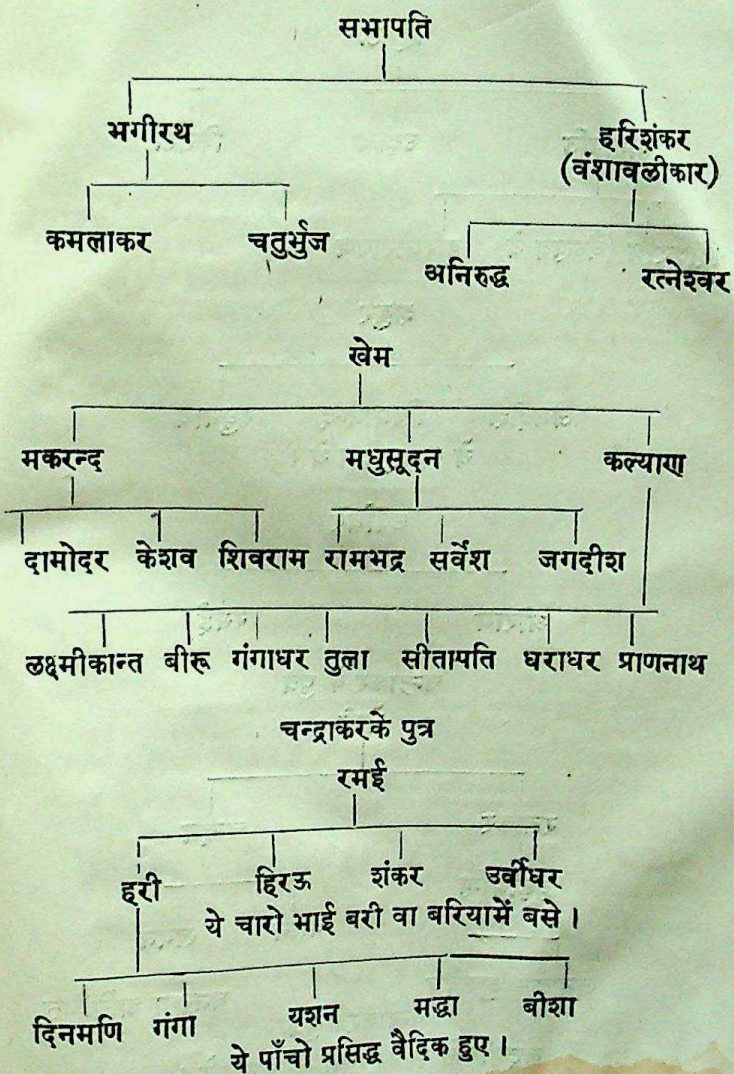 सभापति
भगीरथ हरिशंकर
(वंशावळीकार)
कमलाकर चतुर्भुज
अनिरुद्ध रत्नेश्वर
खेम
मकरन्द मधुसूदन कल्याण
दामोदर केशव शिवराम रामभद्र सर्वेश जगदीश
लक्ष्मीकान्त बीरू गंगाधर तुला सीतापति धराधर प्राणनाथ
चन्द्राकरके पुत्र
रमई
हरी हिरऊ शंकर उर्वीधर
ये चारो भाई बरी वा बरियामें बसे ।
दिनमणि गंगा यशन मद्धा बीशा
ये पाँचो प्रसिद्ध वैदिक हुए ।